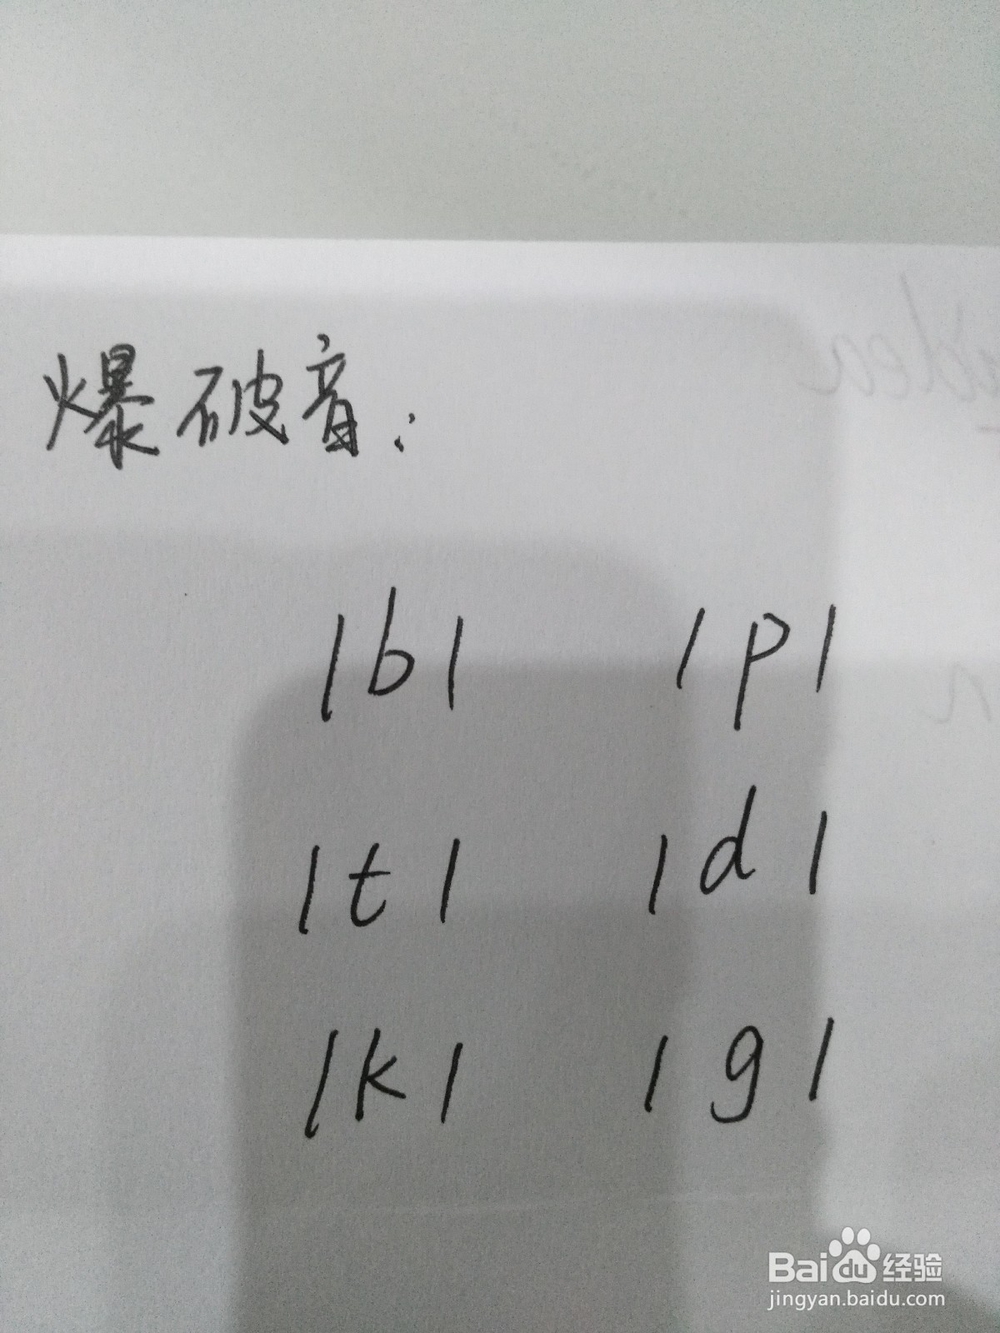 爆破音:
/b/ /p/
/t/ /d/
/k/ /g/
Baidu经验
jingyan.baidu.com